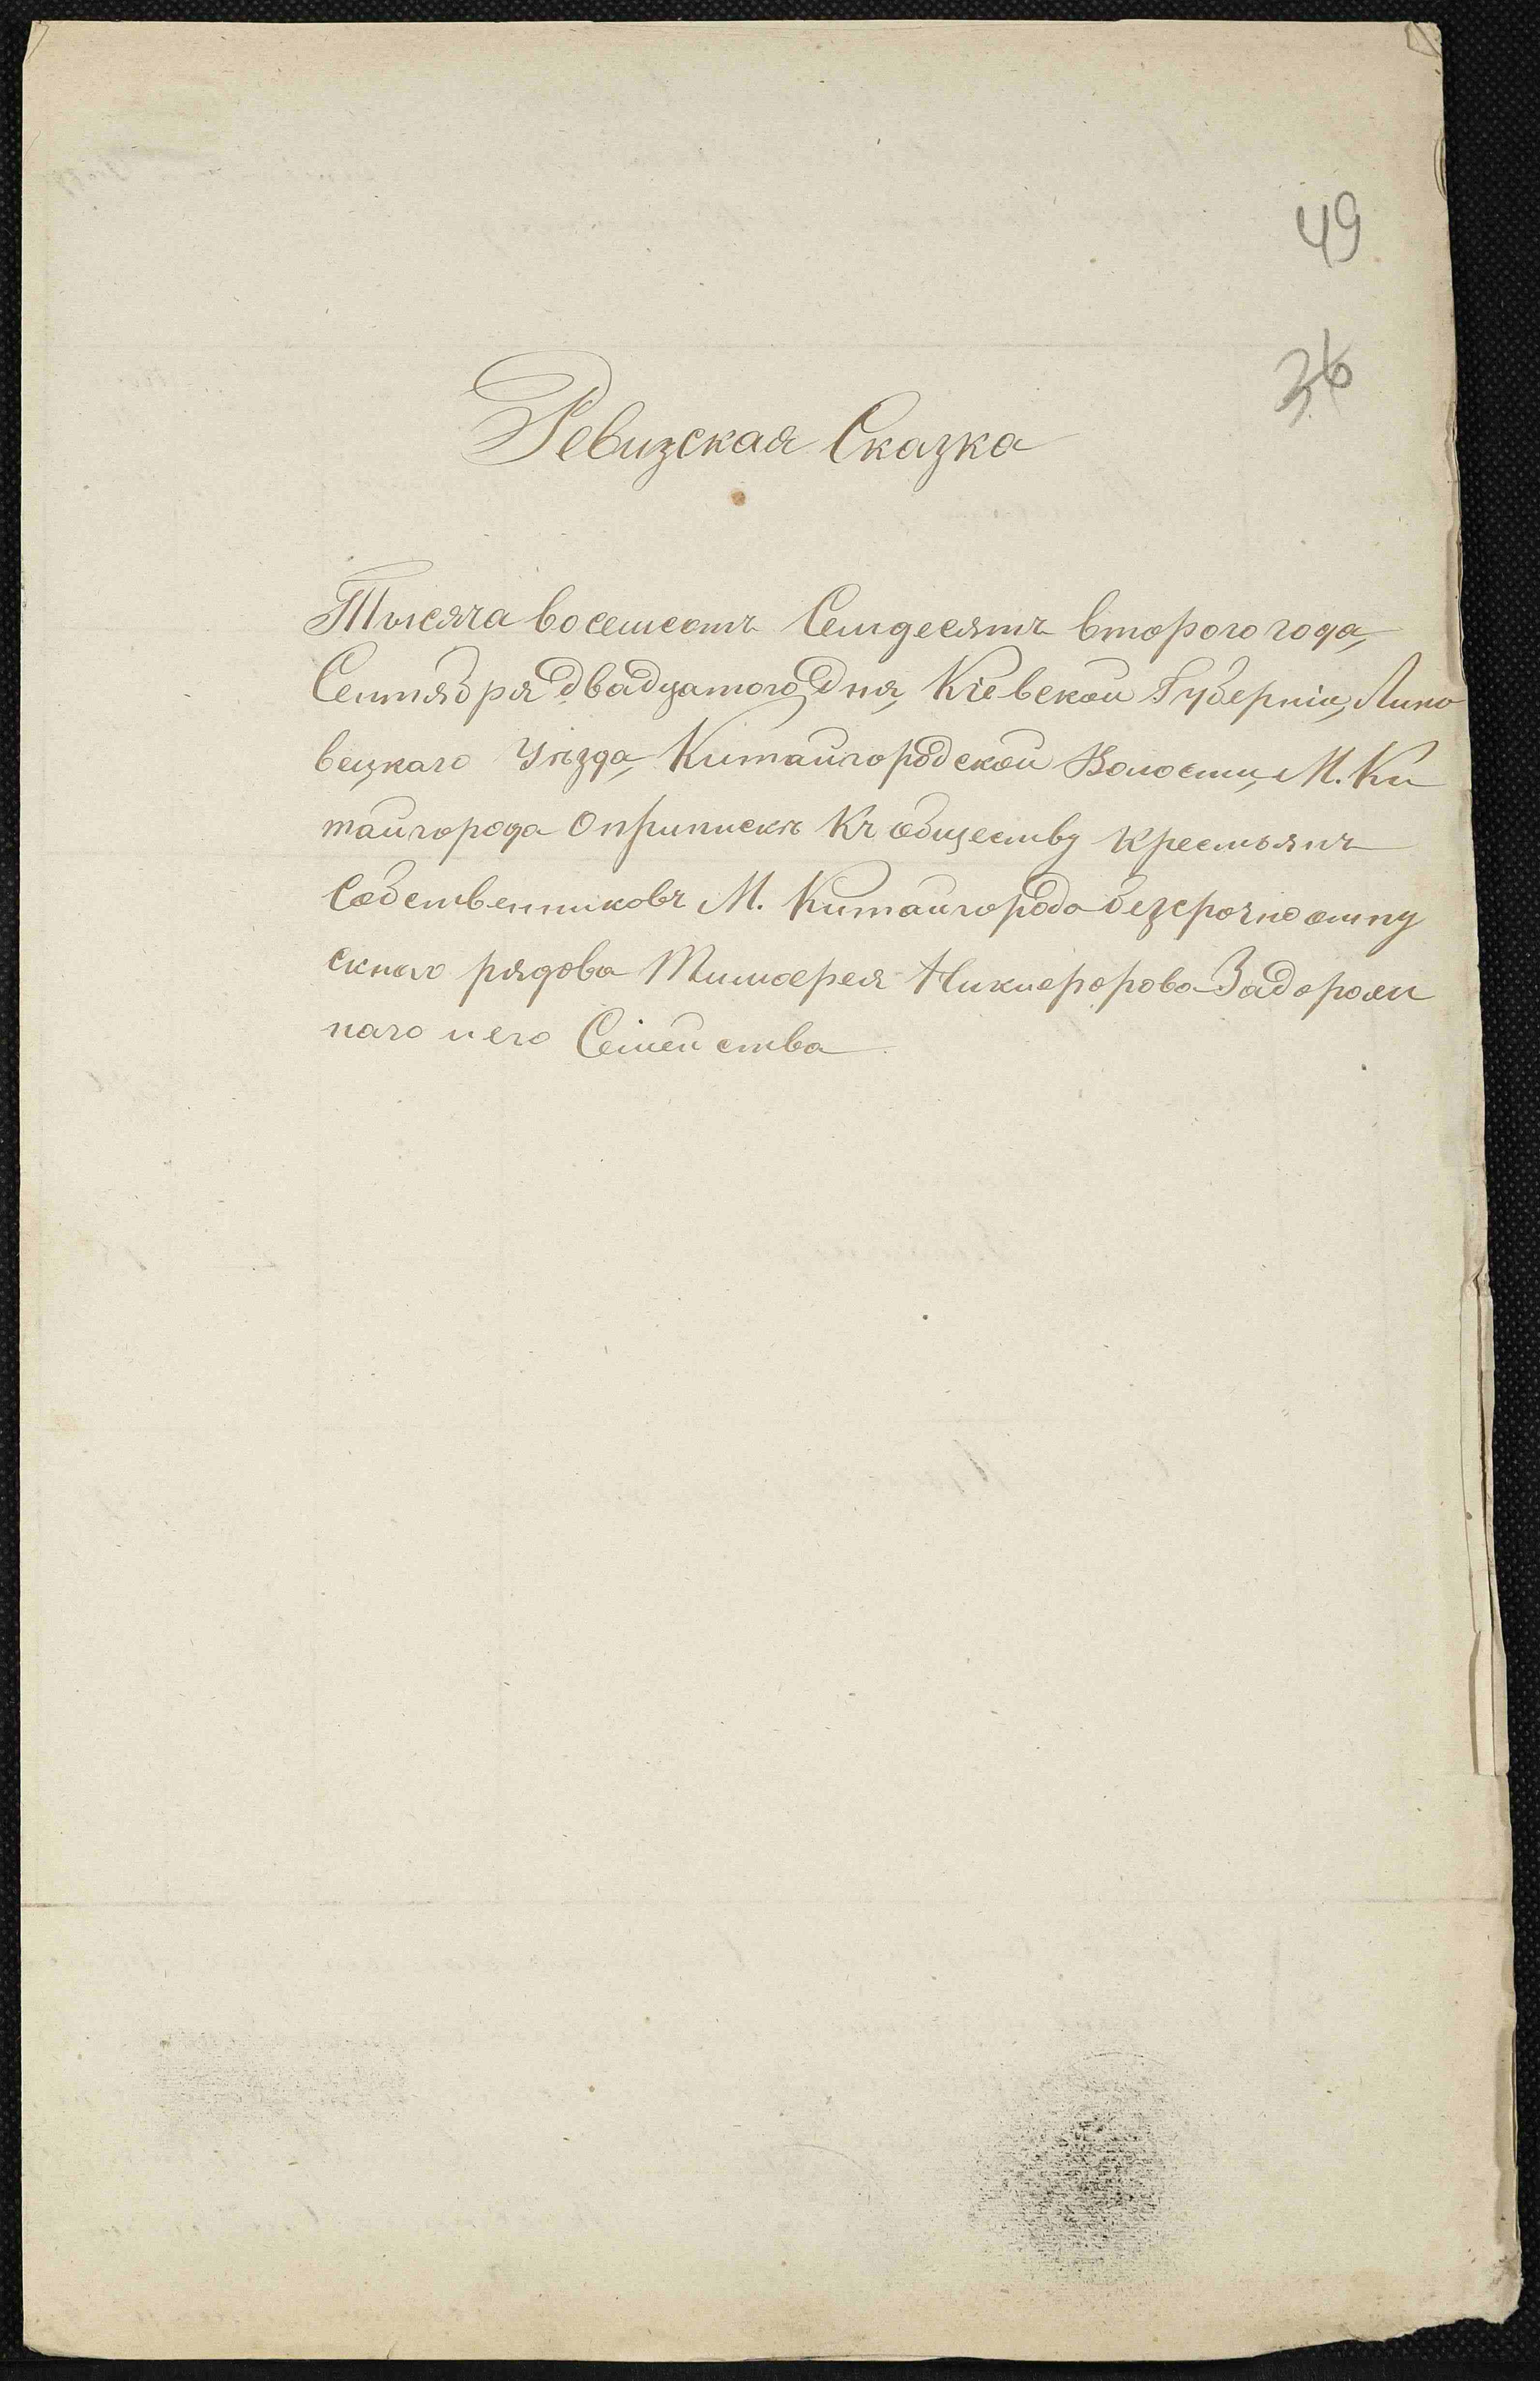 49
36
Ревизская Сказка
Тысяча восемсотъ Семдесятъ второго года,
Сентября двадцатого Дня, Кіевской Губерніи, Липо
вецкаго Уѣзда, Китайгородской Волости, М. Ки
тайгорода О припискѣ Къ обществу Крестьянъ
Собственниковъ М. Китайгорода безсрочно отпу
скного рядова Тимофея Никифорова Задорож
наго и его Семейства